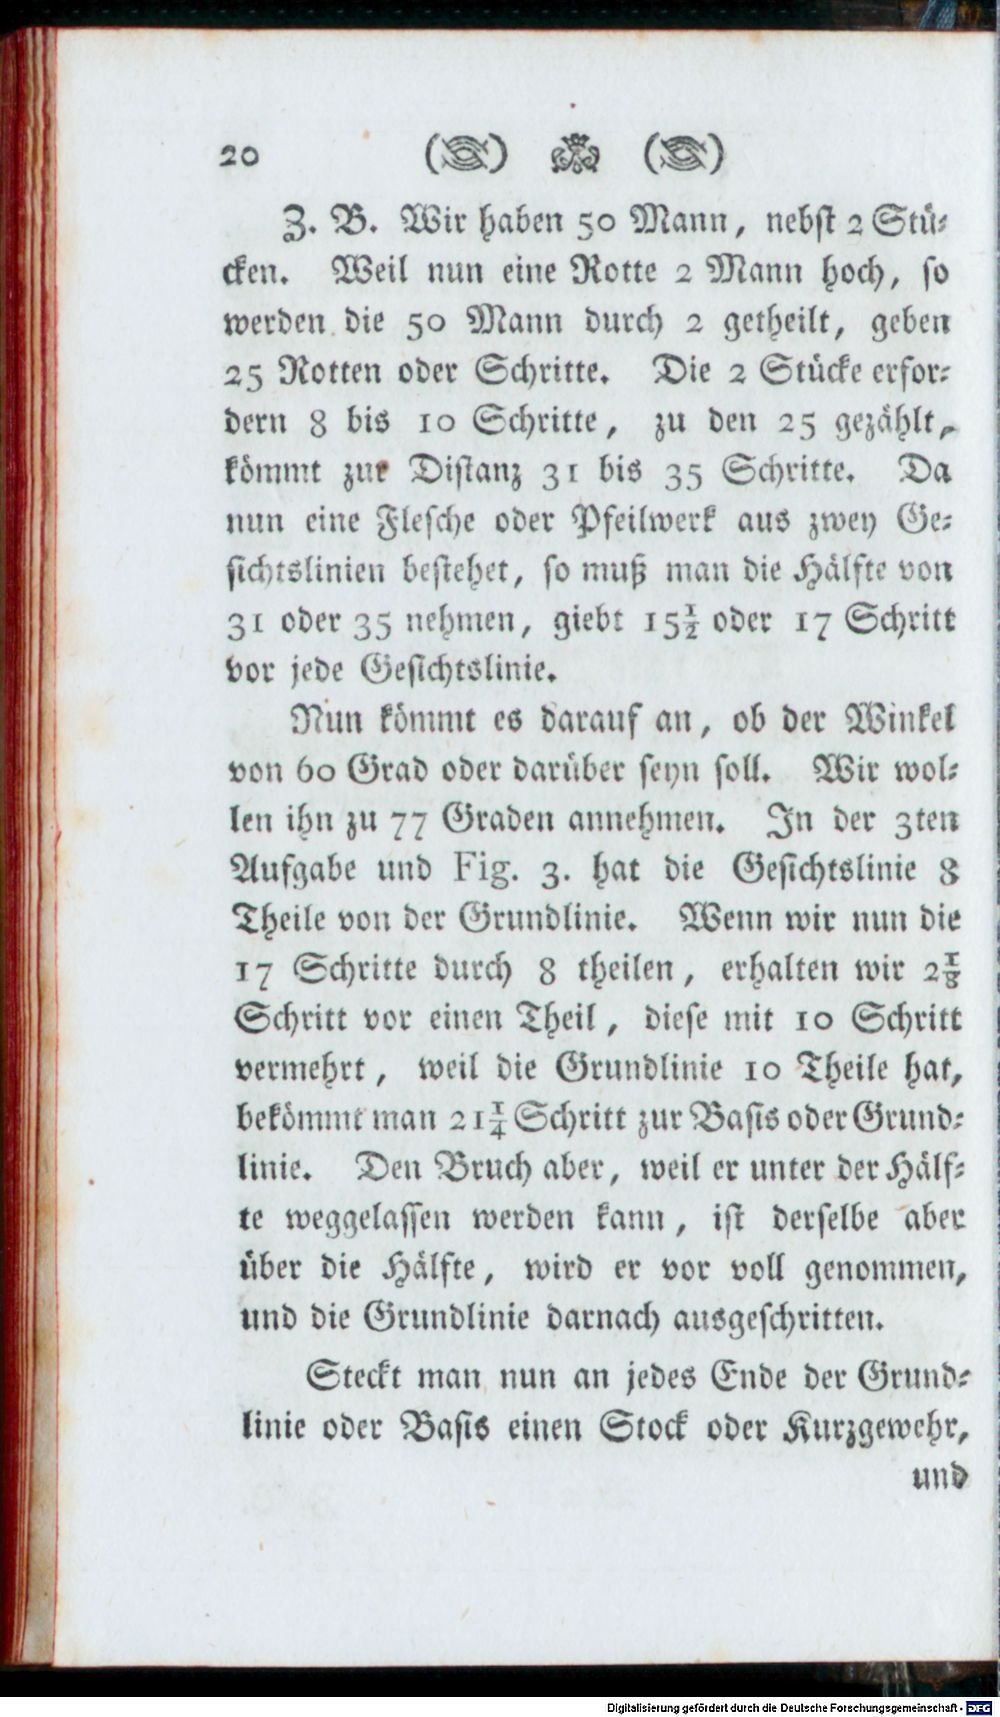 20
Z. B. Wir haben 50 Mann, nebst 2 Stü-
cken. Weil nun eine Rotte 2 Mann hoch, so
werden die 50 Mann durch 2 getheilt, geben
25 Rotten oder Schritte. Die 2 Stücke erfor-
dern 8 bis 10 Schritte, zu den 25 gezählt,
kömmt zur Distanz 31 bis 35 Schritte. Da
nun eine Flesche oder Pfeilwerk aus zwey Ge-
sichtslinien bestehet, so muß man die Hälfte von
31 oder 35 nehmen, giebt 15½ oder 17 Schritt
vor jede Gesichtslinie.
Nun kömmt es darauf an, ob der Winkel
von 60 Grad oder darüber seyn soll. Wir wol-
len ihn zu 77 Graden annehmen. In der 3ten
Aufgabe und Fig. 3. hat die Gesichtslinie 8
Theile von der Grundlinie. Wenn wir nun die
17 Schritte durch 8 theilen, erhalten wir 2⅛
Schritt vor einen Theil, diese mit 10 Schritt
vermehrt, weil die Grundlinie 10 Theile hat,
bekömmt man 21¼ Schritt zur Basis oder Grund-
linie. Den Bruch aber, weil er unter der Hälf-
te weggelassen werden kann, ist derselbe aber
über die Hälfte, wird er vor voll genommen,
und die Grundlinie darnach ausgeschritten.
Steckt man nun an jedes Ende der Grund-
linie oder Basis einen Stock oder Kurzgewehr,
und
Digitalisierung gefördert durch die Deutsche Forschungsgemeinschaft - DFG